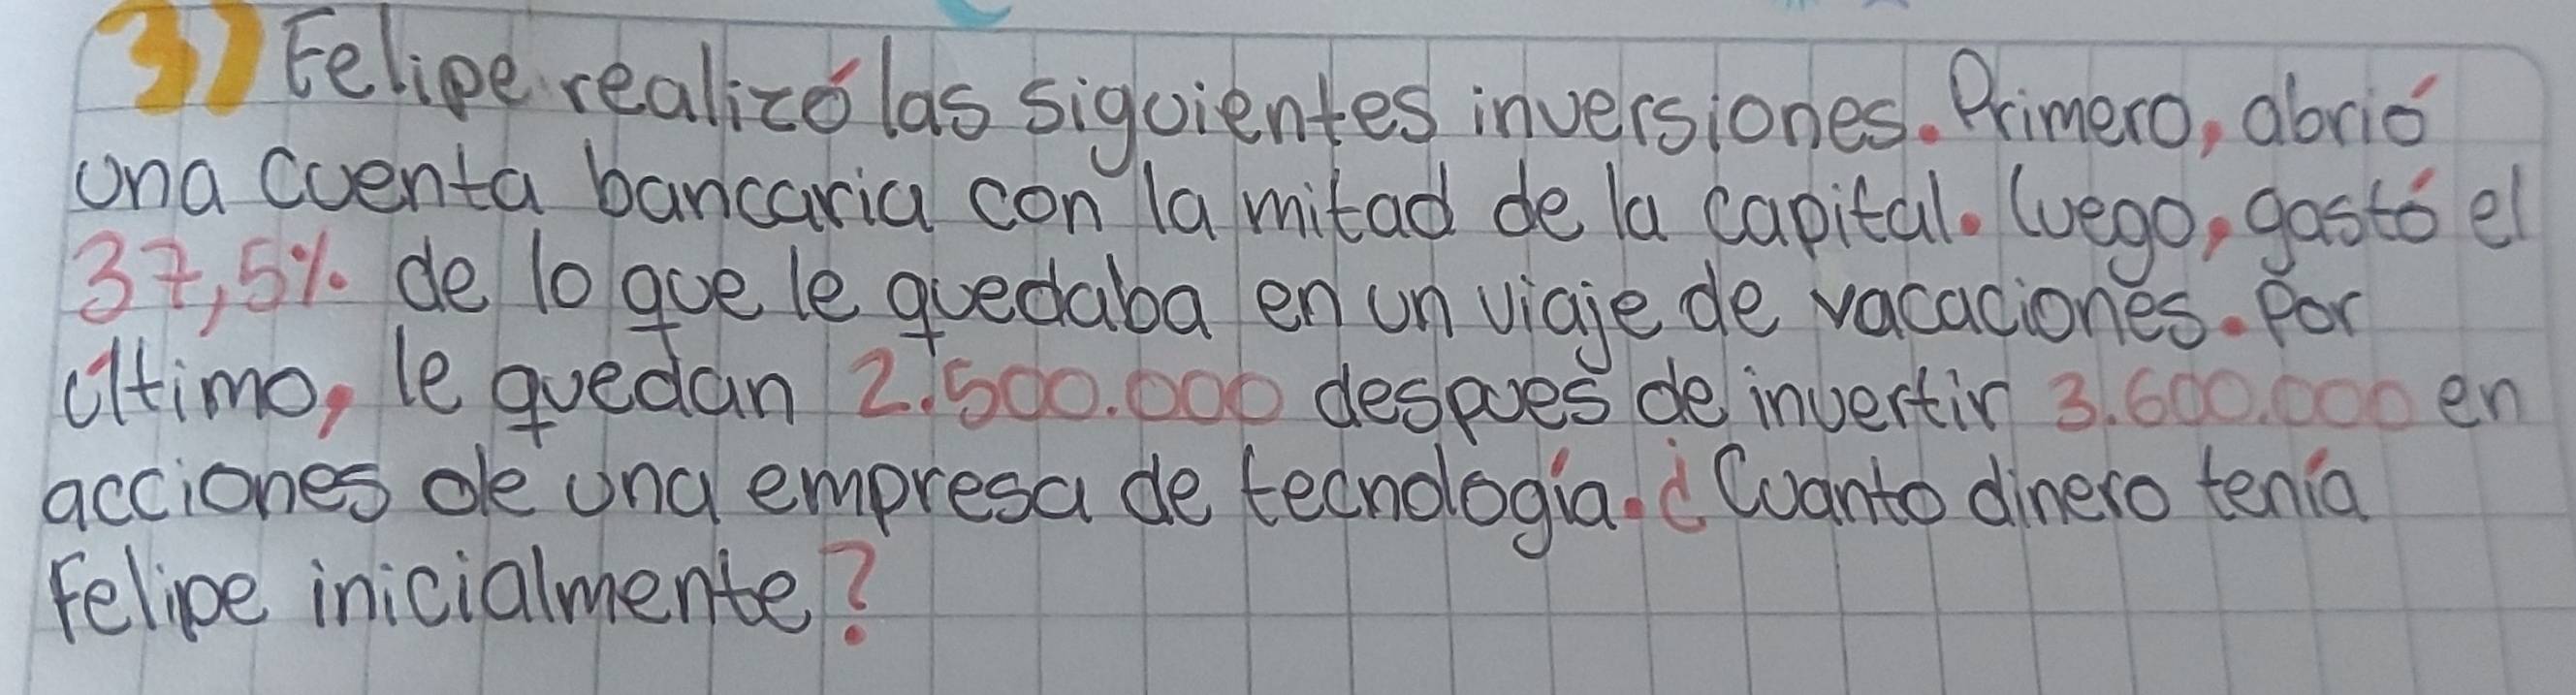 3) Felipe realizó las siguientes inversiones. Primero, abrió
una cuenta bancaria con la mitad de la capital. luego, gastó el
37,5% de lo que le quedaba en un viaje de vacaciones. Por
último, le quedan 2.500.000 despues de invertir 3.600.000 en
acciones de una empresa de tecnología. ¿Cuanto dinero tenía
Felipe inicialmente?